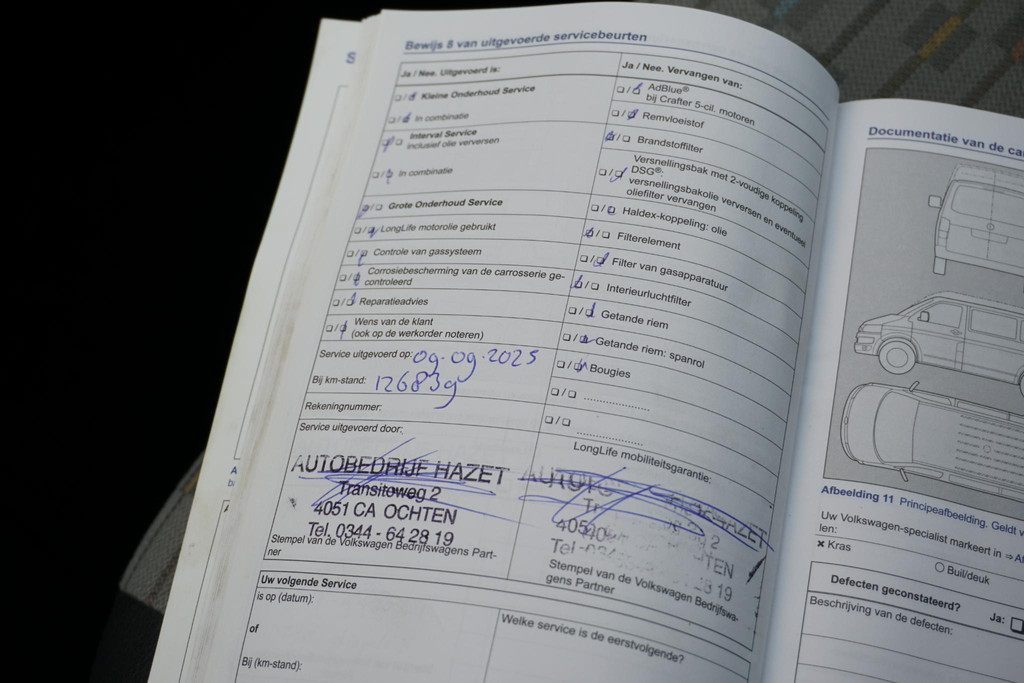 Bewijs 8 van uitgevoerde servicebeurten
Ja / Nee. Uitgevoerd is:
Kleine Onderhoud Service
In combinatie
Interval Service
inclusief olie verversen
In combinatie
Grote Onderhoud Service
LongLife motorolie gebruikt
Controle van gassysteem
Corrosiebescherming van de carrosserie ge-
controleerd
Reparatieadvies
Wens van de klant
(ook op de werkorder noteren)
Service uitgevoerd op: 09-09-2025
Bij km-stand: 126839
Rekeningnummer:
Service uitgevoerd door:
AUTOBEDRIJF HAZET
Transitoweg 2
4051 CA OCHTEN
Tel. 0344 - 64 28 19
Stempel van de Volkswagen Bedrijfswagens Part-
ner
Ja / Nee. Vervangen van:
AdBlue®
bij Crafter 5-cil. motoren
Remvloeistof
Brandstoffilter
Versnellingsbak met 2-voudige koppeling
DSG®:
versnellingsbakolie verversen en eventueel
oliefilter vervangen
Haldex-koppeling: olie
Filterelement
Filter van gasapparatuur
Interieurluchtfilter
Getande riem
Getande riem: spanrol
Bougies
LongLife mobiliteitsgarantie:
HAZET
2
OCHTEN
28 19
Stempel van de Volkswagen Bedrijfswa-
gens Partner
Uw volgende Service
is op (datum):
of
Bij (km-stand):
Welke service is de eerstvolgende?
Documentatie van de
Afbeelding 11 Principeafbeelding. Geldt
Uw Volkswagen-specialist markeert in
len:
× Kras
Buil/deuk
Defecten geconstateerd?
Ja:
Beschrijving van de defecten: